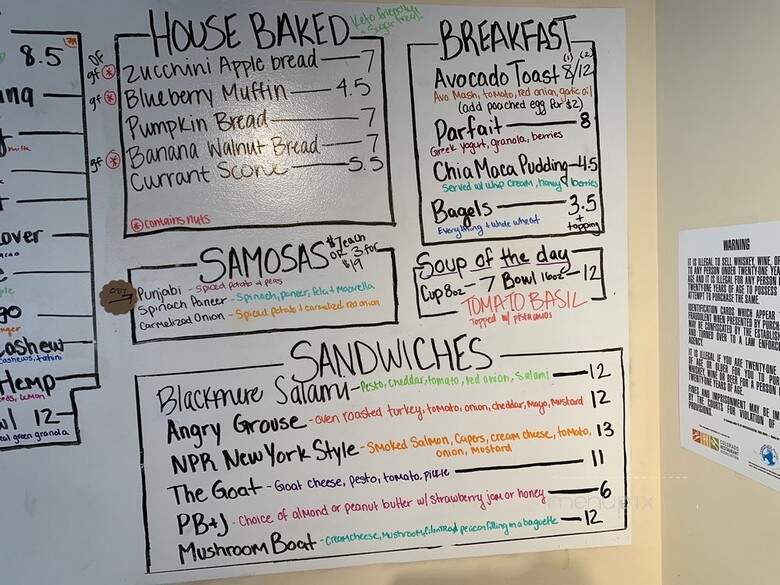 8.5
HOUSE BAKED
Keto friendly
DF
gf Zucchini Apple bread 7
gf Blueberry Muffin 4.5
Pumpkin Bread 7
gf Banana Walnut Bread 7
Currant Scone 5.5
contains nuts
SAMOSAS $7 each
or 3 for
$19
Punjabi - Spiced potato + peas
Spinach Paneer - Spinach, paneer, feta + Mozzarella
Carmelized Onion - Spiced potato + carmelized red onion
BREAKFAST
(1) (2)
Avocado Toast 8/12
Avo Mash, tomato, red onion, garlic oil
(add poached egg for $2)
Parfait 8
Greek yogurt, granola, berries
Chia Maca Pudding 4.5
Served w/ whip cream, honey, berries
Bagels 3.5
Everything + whole wheat
+ topping
Soup of the day
Cup 8oz - 7 Bowl 16oz - 12
TOMATO BASIL
Topped w/ pistachios
SANDWICHES
Blackmere Salami - Pesto, cheddar, tomato, red onion, Salami 12
Angry Grouse - oven roasted turkey, tomato, onion, cheddar, Mayo, Mustard 12
NPR New York Style - Smoked Salmon, Capers, cream cheese, tomato, 13
onion, Mustard
The Goat - Goat cheese, pesto, tomato, pickle 11
PB+J - Choice of almond or peanut butter w/ strawberry jam or honey 6
Mushroom Boat - Creamcheese, Mushroom, filling in a baguette 12
milk
over
go
ashew
Cashews, tahini
Hemp
lemon
wl 12
green granola
WARNING
IT IS ILLEGAL TO SELL WHISKEY, WINE, OR
TO ANY PERSON UNDER TWENTY-ONE YEA
AGE AND IT IS ILLEGAL FOR ANY PERSON
TWENTY-ONE YEARS OF AGE TO POSSESS
ATTEMPT TO PURCHASE THE SAME.
IDENTIFICATION CARDS WHICH APPEAR
FRAUDULENT WHEN PRESENTED BY PURC
MAY BE CONFISCATED BY THE ESTABLIS
AND TURNED OVER TO A LAW ENFORCE
AGENCY.
IT IS ILLEGAL IF YOU ARE TWENTY-ONE
OF AGE OR OLDER FOR YOU TO
WHISKEY, WINE OR BEER FOR A PERSON
TWENTY-ONE YEARS OF AGE.
FINES AND IMPRISONMENT MAY BE
BY THE COURTS FOR VIOLATION OF
PROVISIONS
COLORADO
RESTAURANT
menupix